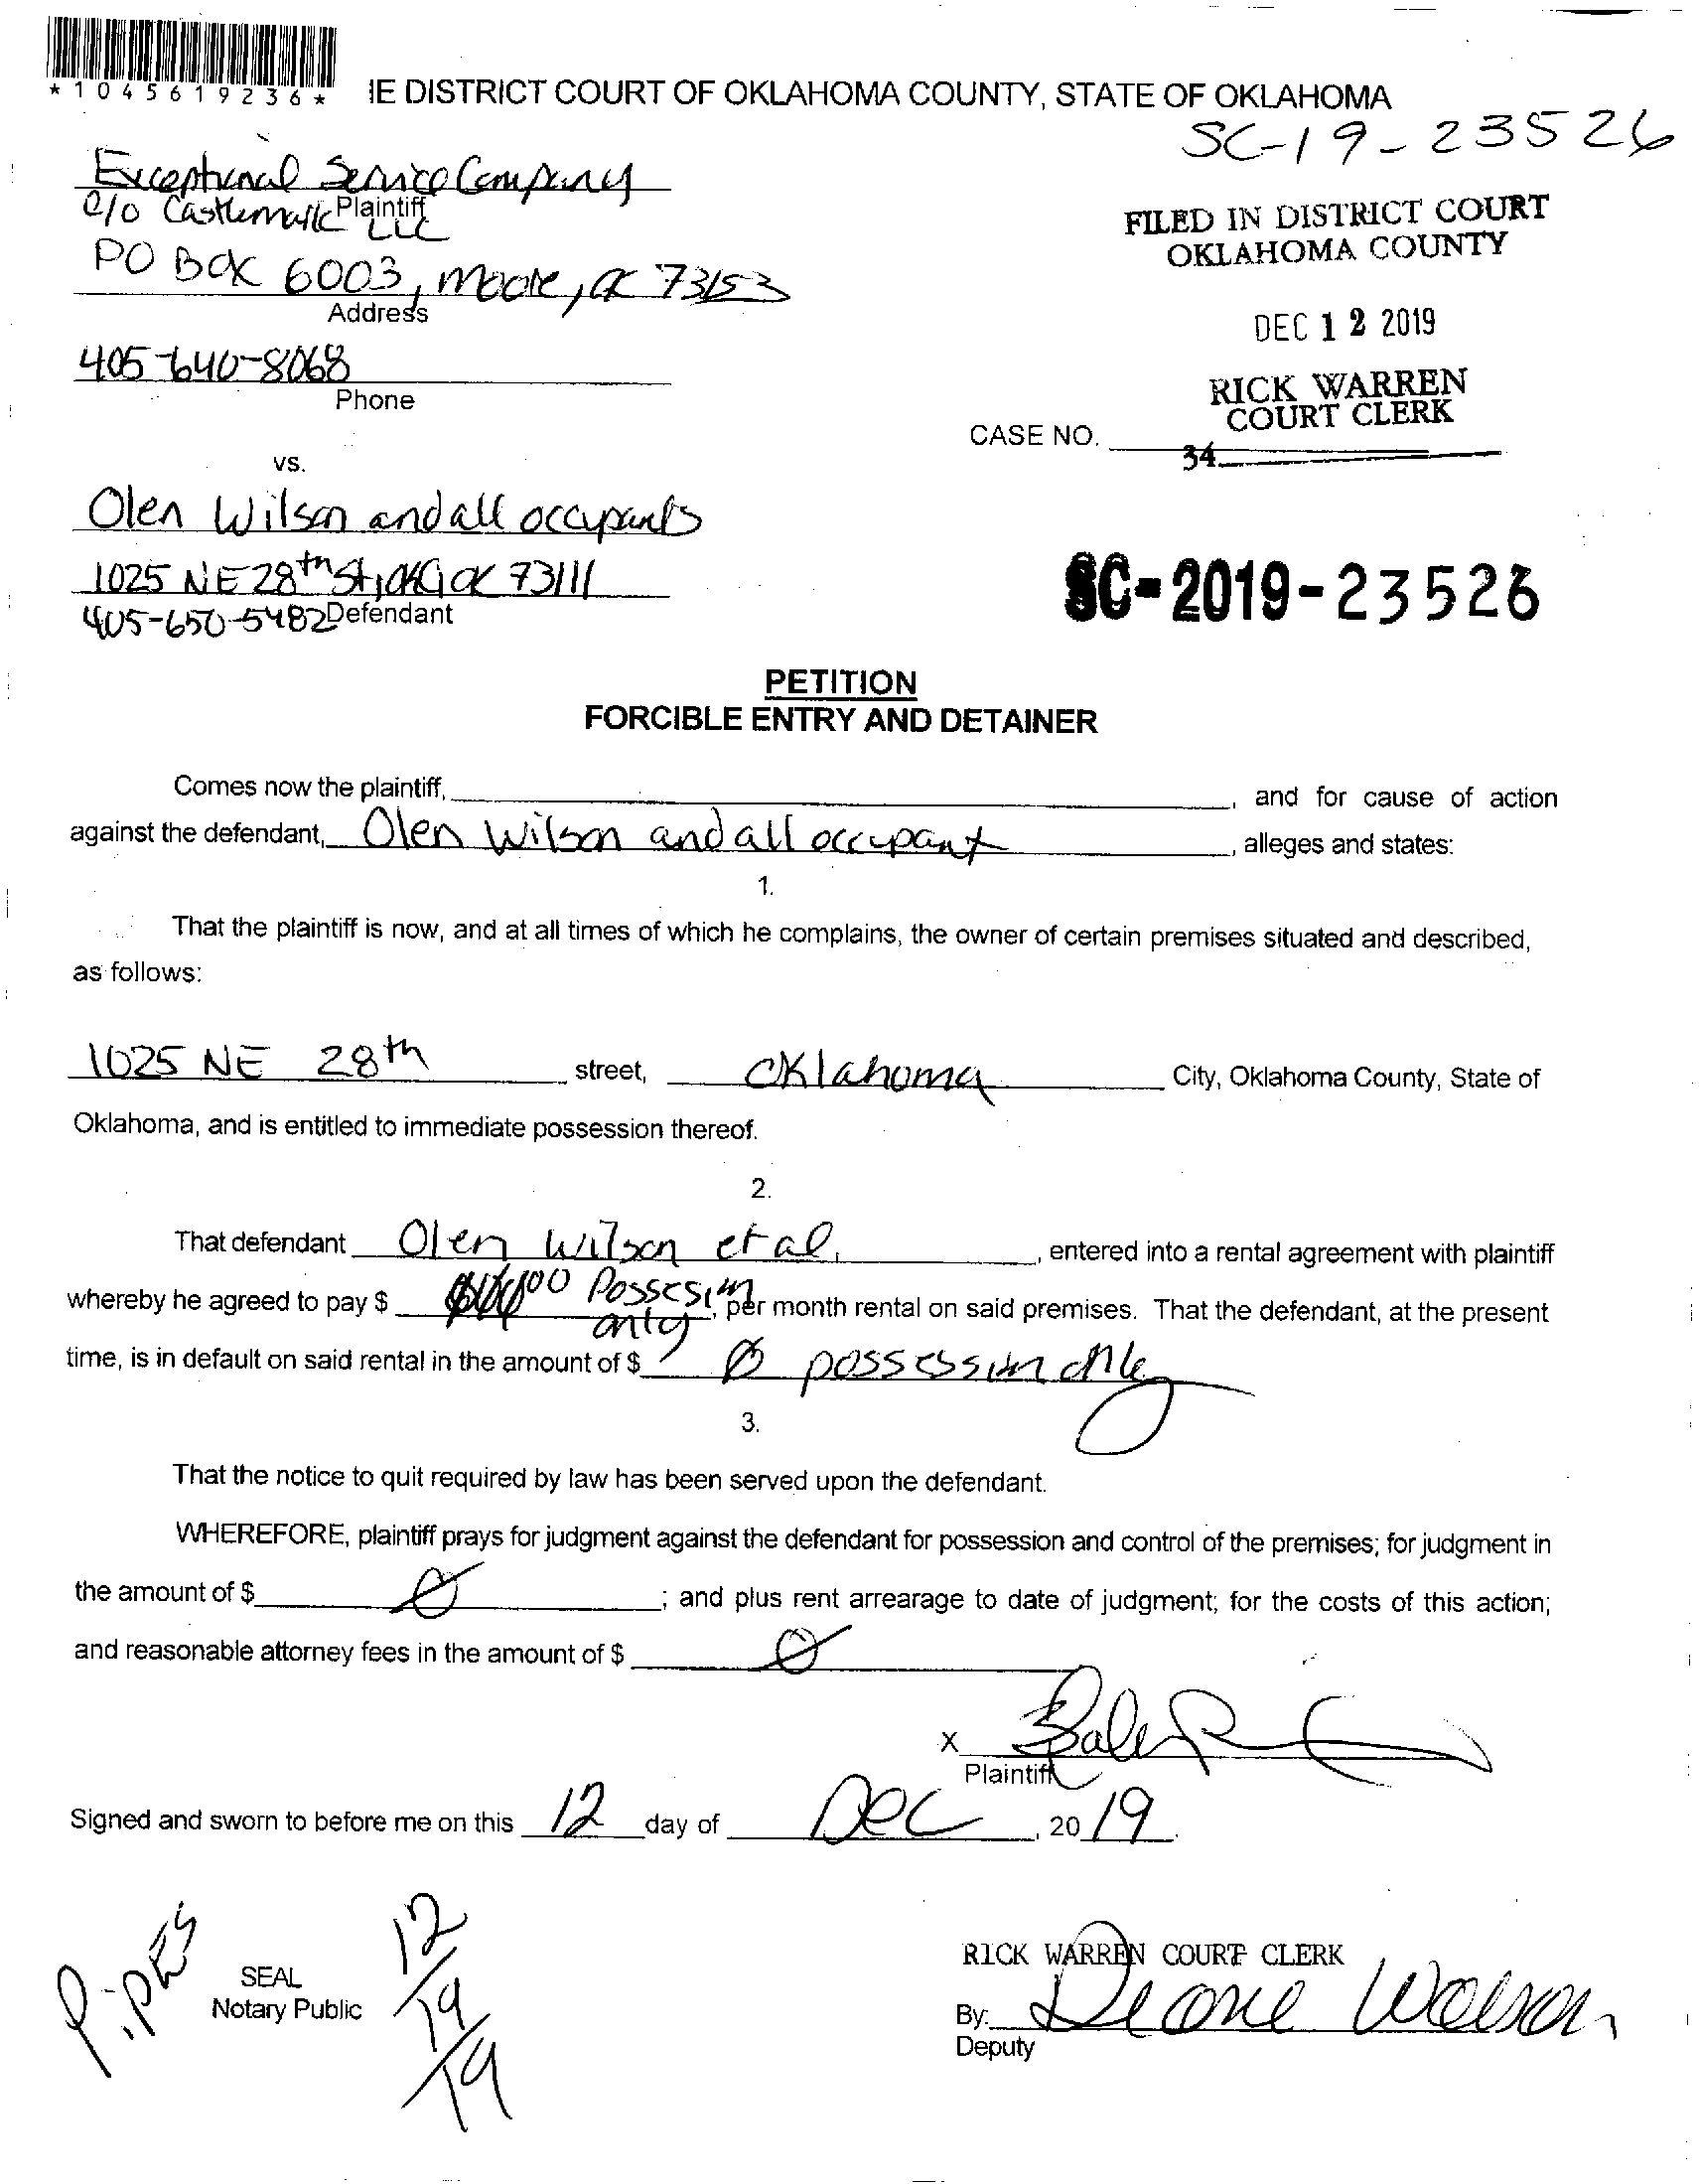 *1045619236*
IE DISTRICT COURT OF OKLAHOMA COUNTY, STATE OF OKLAHOMA
SC-19-23526
Exceptional Service Company
c/o Castlemark LLC
Plaintiff
FILED IN DISTRICT COURT
OKLAHOMA COUNTY
PO Box 6003, Moore, OK 73153
Address
DEC 12 2019
405-640-8068
Phone
RICK WARREN
COURT CLERK
CASE NO.
34
vs.
Olen Wilson and all occupants
1025 NE 28th St, OKC, OK 73111
405-650-5482 Defendant
SC-2019-23526
PETITION
FORCIBLE ENTRY AND DETAINER
Comes now the plaintiff, , and for cause of action
against the defendant, Olen Wilson and all occupant, alleges and states:
1.
That the plaintiff is now, and at all times of which he complains, the owner of certain premises situated and described,
as follows:
1025 NE 28th street, Oklahoma City, Oklahoma County, State of
Oklahoma, and is entitled to immediate possession thereof.
2.
That defendant Olen Wilson et al, , entered into a rental agreement with plaintiff
whereby he agreed to pay $ Possession only, per month rental on said premises. That the defendant, at the present
time, is in default on said rental in the amount of $ Ø possession only
3.
That the notice to quit required by law has been served upon the defendant.
WHEREFORE, plaintiff prays for judgment against the defendant for possession and control of the premises; for judgment in
the amount of $ Ø ; and plus rent arrearage to date of judgment; for the costs of this action;
and reasonable attorney fees in the amount of $ Ø
X
Plaintiff
Signed and sworn to before me on this 12 day of Dec, 20 19.
P.PES
12/19/19
SEAL
Notary Public
RICK WARREN COURT CLERK
By: Diane Wilson
Deputy